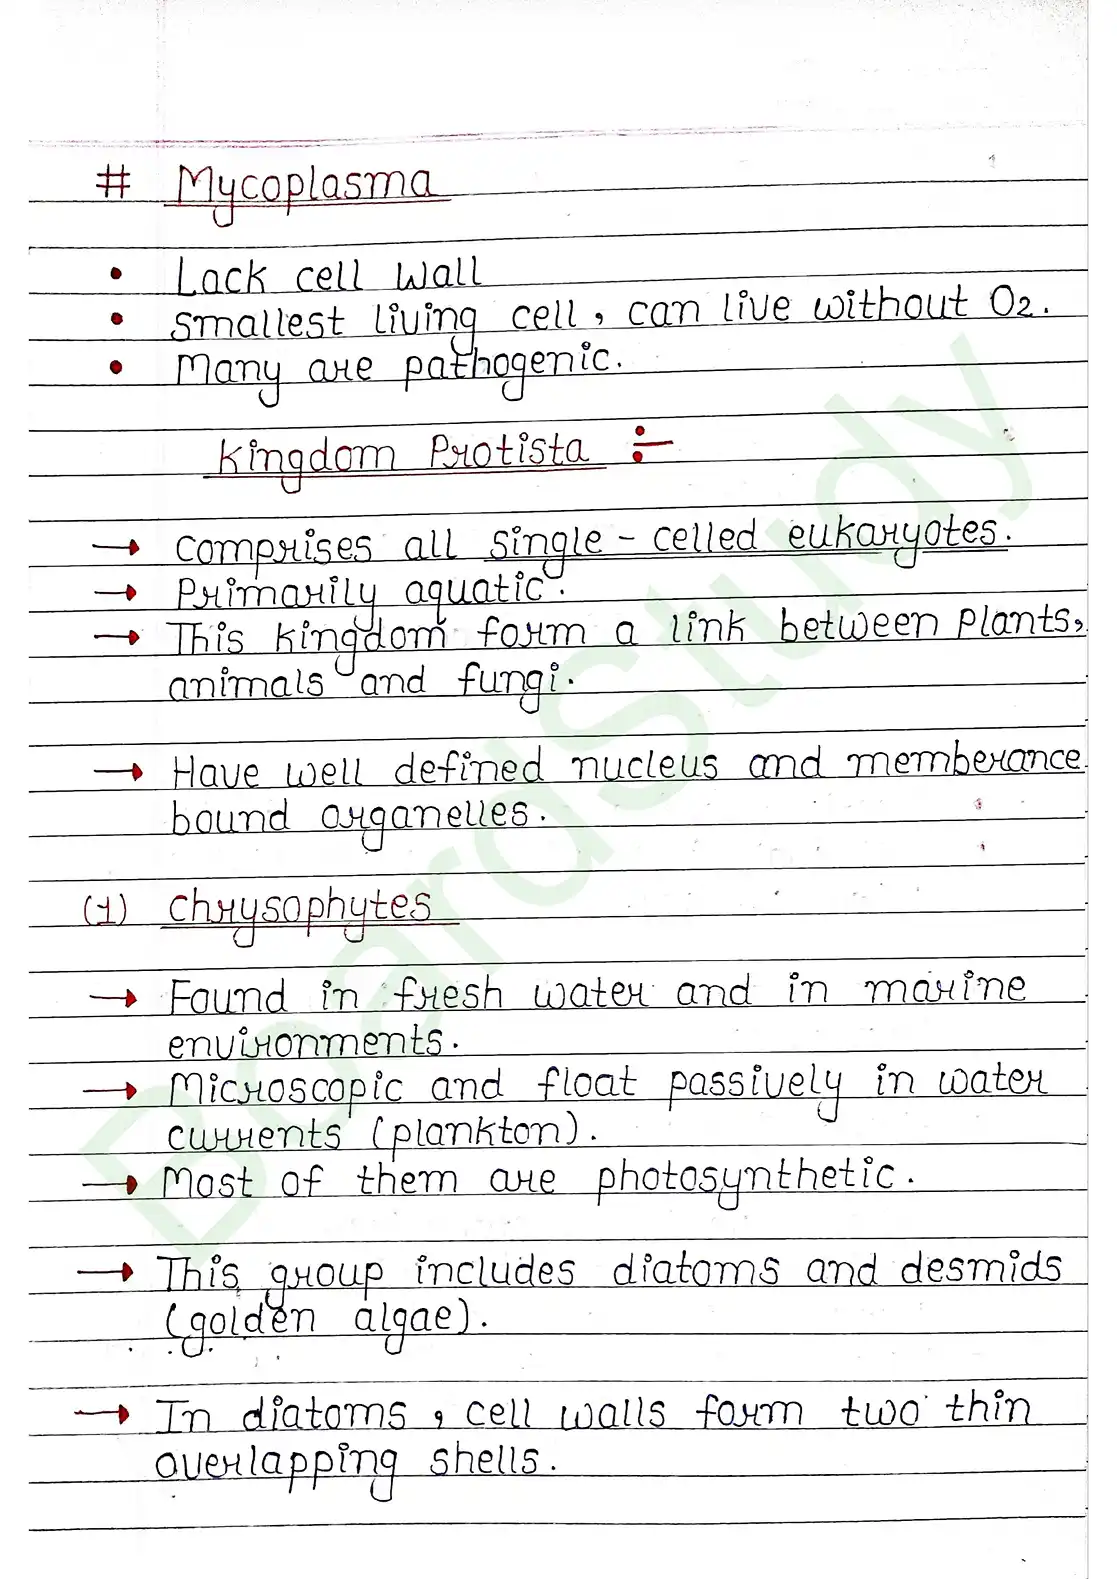 # Mycoplasma
• Lack cell wall
• smallest living cell, can live without O2.
• Many are pathogenic.
Kingdom Protista ÷
→ comprises all single - celled eukaryotes.
→ Primarily aquatic.
→ This kingdom form a link between plants,
animals and fungi.
→ Have well defined nucleus and memberance
bound organelles.
(1) chrysophytes
→ Found in fresh water and in marine
environments.
→ Microscopic and float passively in water
currents (plankton).
→ Most of them are photosynthetic.
→ This group includes diatoms and desmids
(golden algae).
→ In diatoms, cell walls form two thin
overlapping shells.
BoardStudy